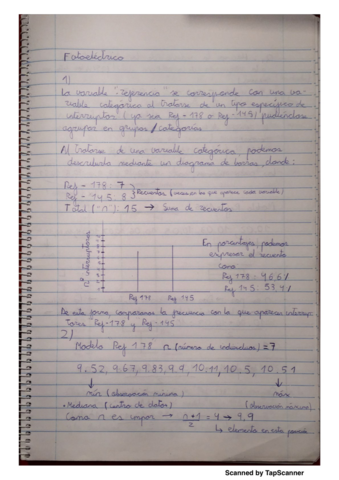 Fotoeléctrico
1)
La variable "referencia" se corresponde con una va-
riable categórica al tratarse de un tipo específico de
interruptor (ya sea Ref = 178 o Ref - 145) pudiéndose
agrupar en grupos / categorías
Al tratarse de una variable categórica podemos
describirla mediante un diagrama de barras, donde:
Ref - 178: 7
Ref - 145: 8 Recuentos (veces en las que aparece cada variable)
Total (n): 15 → Suma de recuentos
nº interruptores
Ref 178 Ref 145
En porcentajes podemos
expresar el recuento
como
Ref 178: 46,6%
Ref 145: 53,4%
De esta forma, comparamos la frecuencia con la que aparecen interrup-
tores Ref-178 y Ref-145
2)
Modelo Ref 178 n (número de individuos) = 7
9.52, 9.67, 9.83, 9.9, 10.11, 10.5, 10.51
min (observación mínima) máx
• Mediana (centro de datos) (observación máxima)
Como n es impar → n+1/2 = 4 → 9,9
↳ elemento en esta posición
Scanned by TapScanner